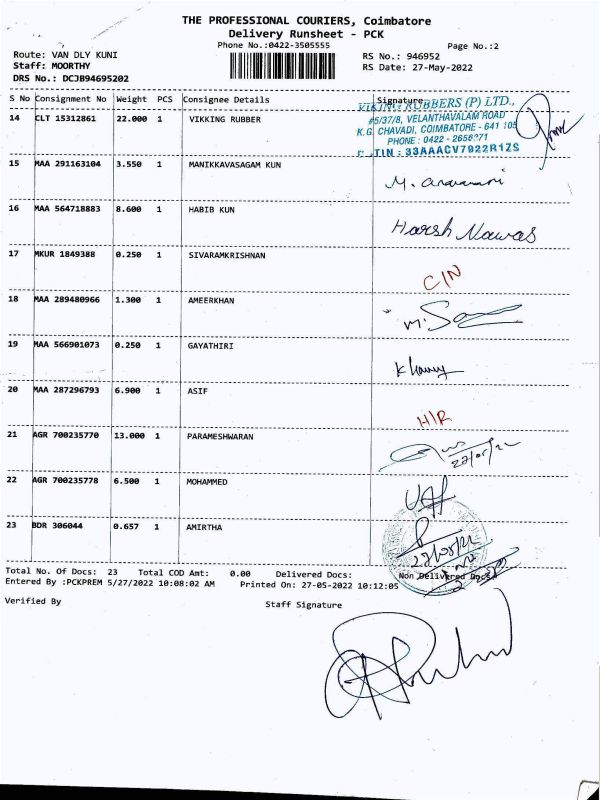 THE PROFESSIONAL COURIERS, Coimbatore
Delivery Runsheet - PCK
Phone No.:0422-3505555
Page No.:2
Route: VAN DLY KUNI
Staff: MOORTHY
DRS No.: DCJB94695202
RS No.: 946952
RS Date: 27-May-2022
S No Consignment No Weight PCS Consignee Details Signature
VIKING RUBBERS (P) LTD.,
#5/37/8, VELANTHAVALAM ROAD
K.G. CHAVADI, COIMBATORE - 641 105
PHONE : 0422 -
TIN : 33AAACV7922R1ZS
14 CLT 15312861 22.000 1 VIKKING RUBBER
15 MAA 291163104 3.550 1 MANIKKAVASAGAM KUN
16 MAA 564718883 8.600 1 HABIB KUN
Harsh Nawas
17 MKUR 1849388 0.250 1 SIVARAMKRISHNAN
C/N
18 MAA 289480966 1.300 1 AMEERKHAN
19 MAA 566901073 0.250 1 GAYATHIRI
20 MAA 287296793 6.900 1 ASIF
H/R
21 AGR 700235770 13.000 1 PARAMESHWARAN
22 AGR 700235778 6.500 1 MOHAMMED
23 BDR 306044 0.657 1 AMIRTHA
Total No. Of Docs: 23 Total COD Amt: 0.00 Delivered Docs: Non Delivered Docs:
Entered By :PCKPREM 5/27/2022 10:08:02 AM Printed On: 27-05-2022 10:12:05
Verified By Staff Signature